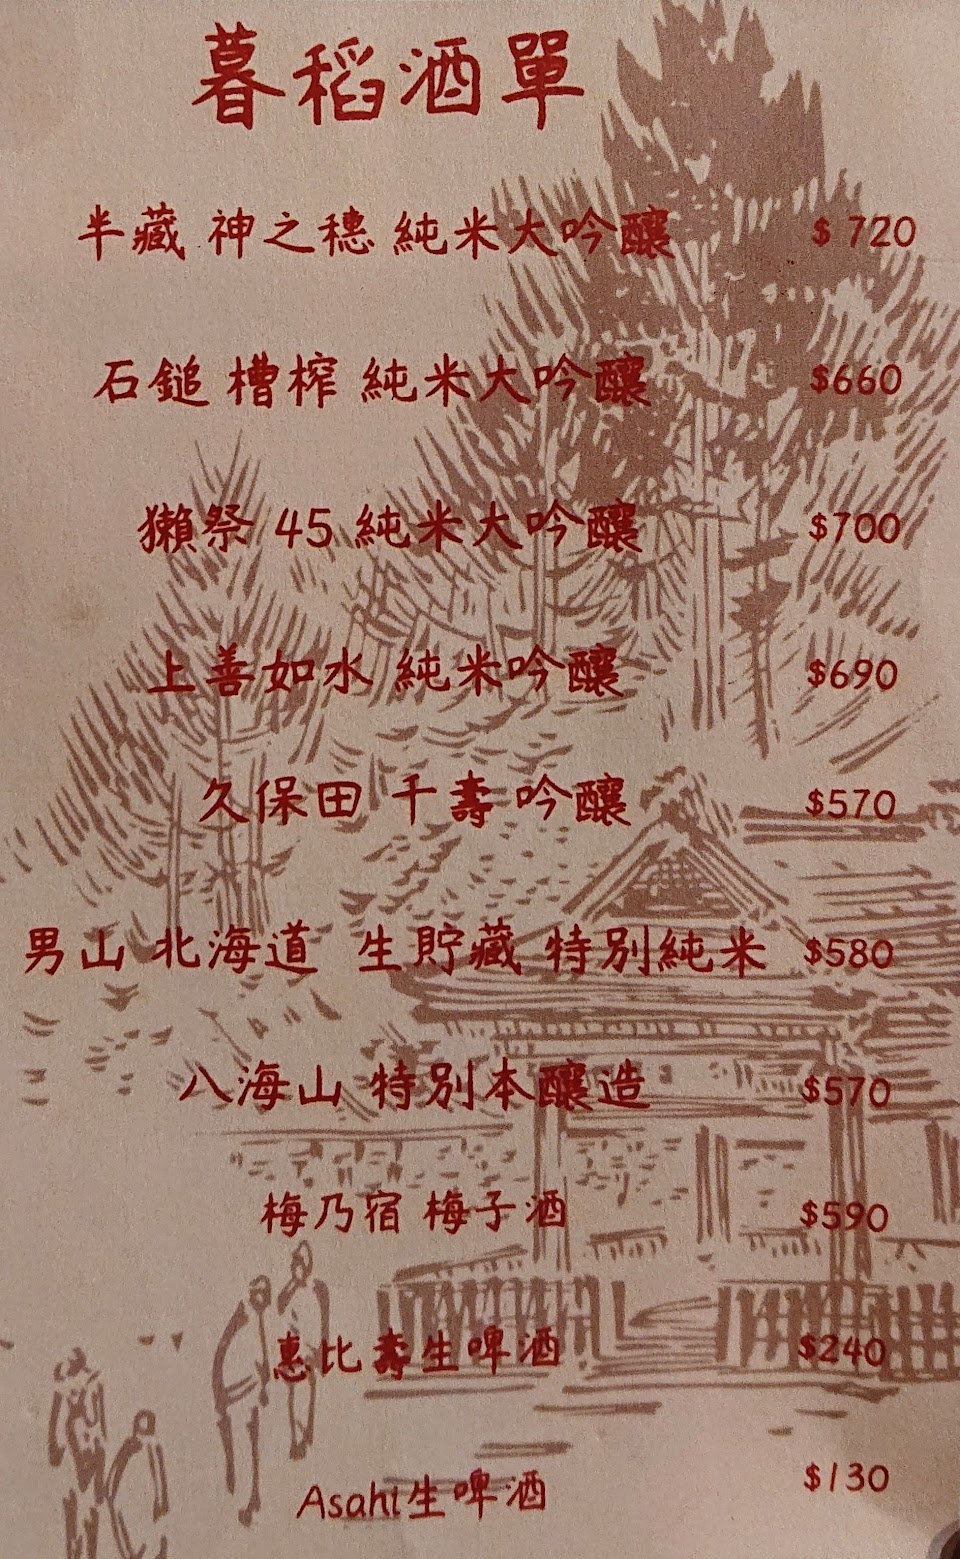 暮稻酒單
半藏 神之穗 純米大吟釀 $720
石鎚 槽榨 純米大吟釀 $660
獺祭 45 純米大吟釀 $700
上善如水 純米吟釀 $690
久保田 千壽 吟釀 $570
男山 北海道 生貯藏 特別純米 $580
八海山 特別本釀造 $570
梅乃宿 梅子酒 $590
惠比壽生啤酒 $240
Asahi生啤酒 $130